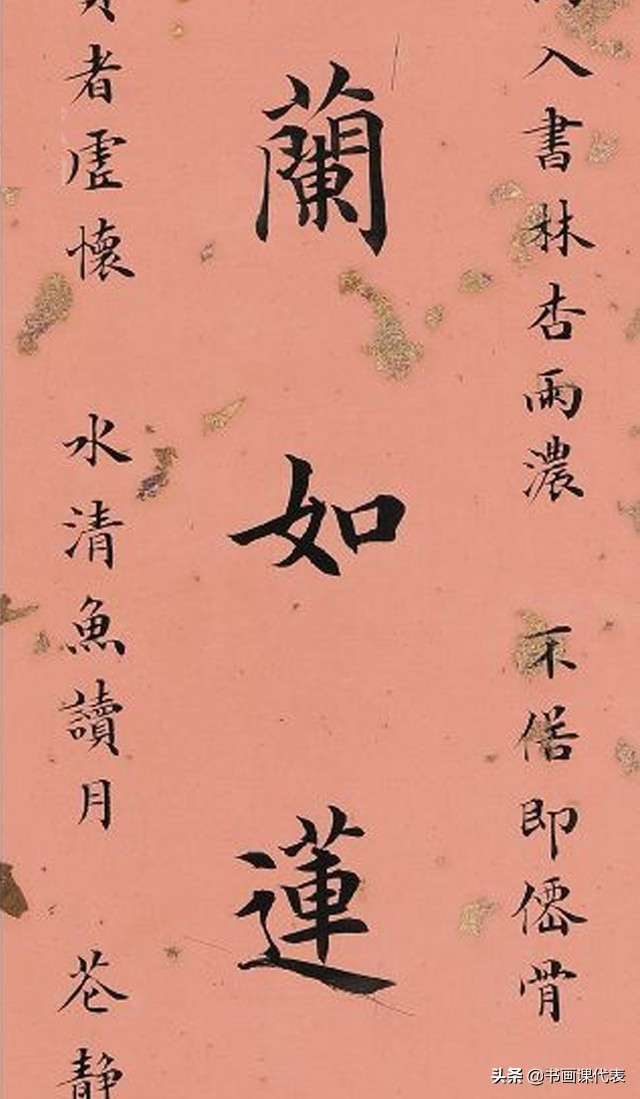 入書林杏雨濃 不俗即僊骨
蘭如蓮
者虛懷 水清魚讀月 花静
头条 @书画课代表